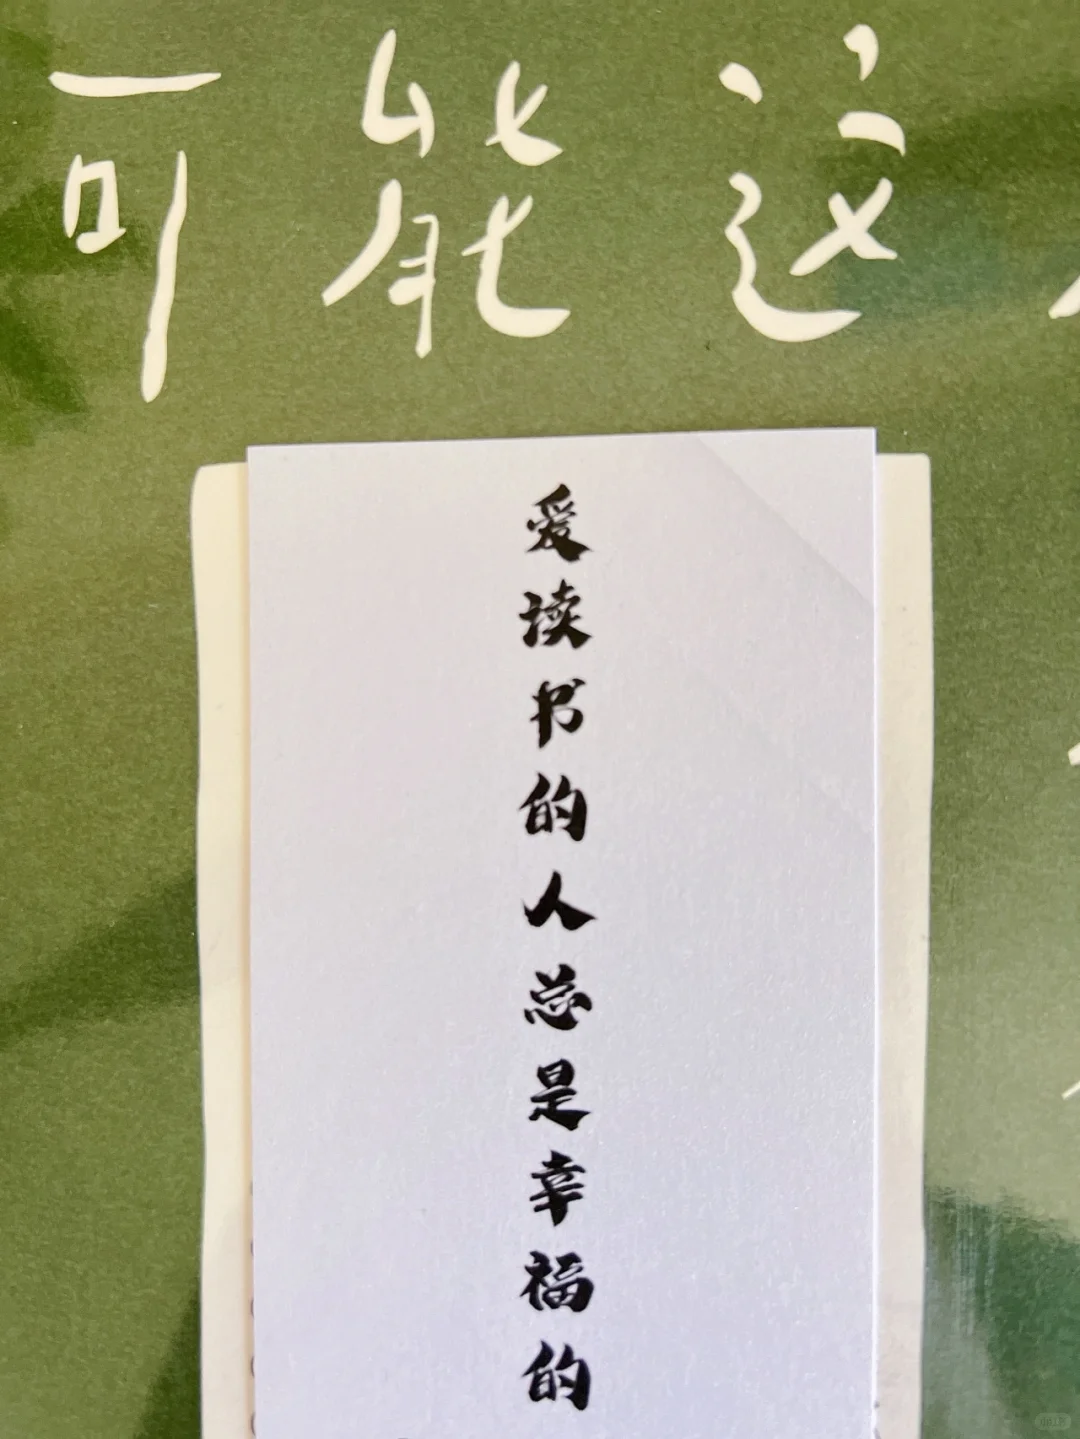 可能这
爱读书的人总是幸福的